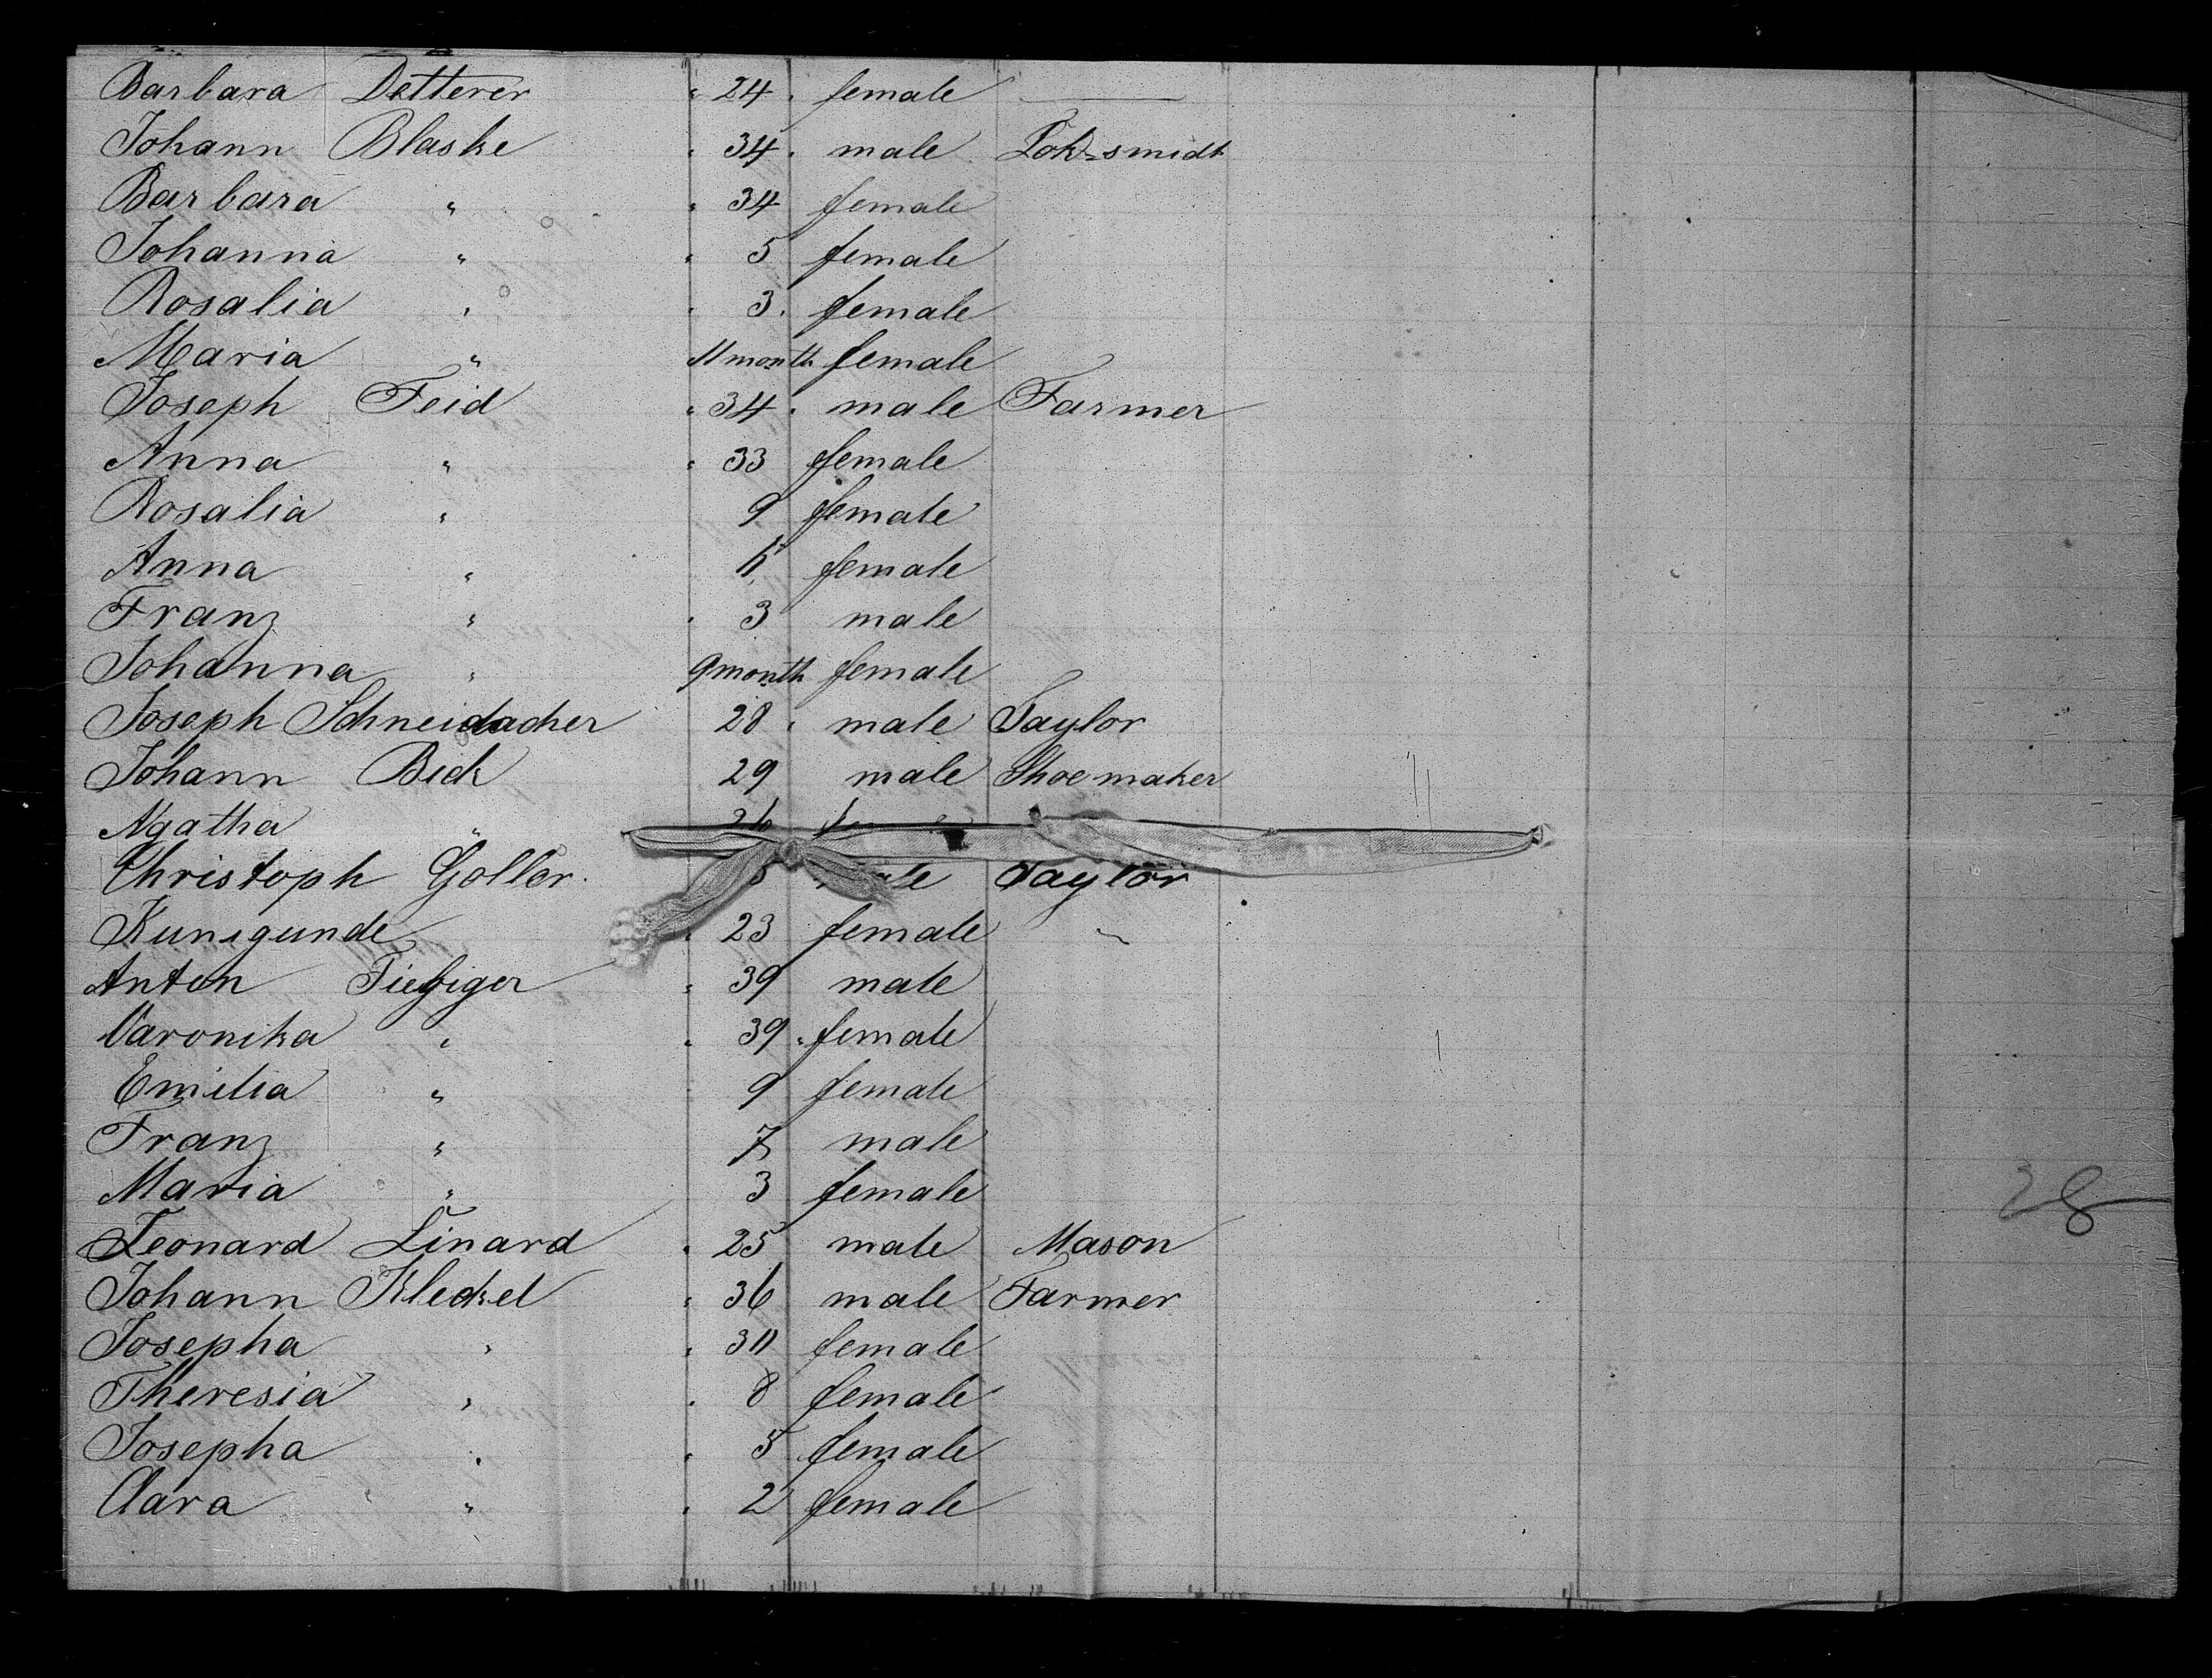 Barbara Detterer " 24 . female —
Johann Blaske " 34 . male Lok-smidt
Barbara " " 34 female
Johanna " " 5 female
Rosalia " . 3 . female
Maria " 11 month female
Joseph Feid " 34 . male Farmer
Anna " " 33 female
Rosalia " 9 female
Anna " female
Franz " . 3 male
Johanna " 9 month female
Joseph Schneidacher 28 . male Taylor
Johann Bick 29 male Shoemaker
Agatha " 26
Christoph Goller. male Taylor
Kunigunde 23 female
Anton " 39 male
Varonika " " 39 " female
Emilia " 9 female
Franz " 7 male
Maria " 3 female
Leonard Linard " 25 male Mason
28
Johann Kleckel " 36 male Farmer
Josepha " " 30 female
Theresia " . 8 female
Josepha " " 5 female
Clara " . 2 female